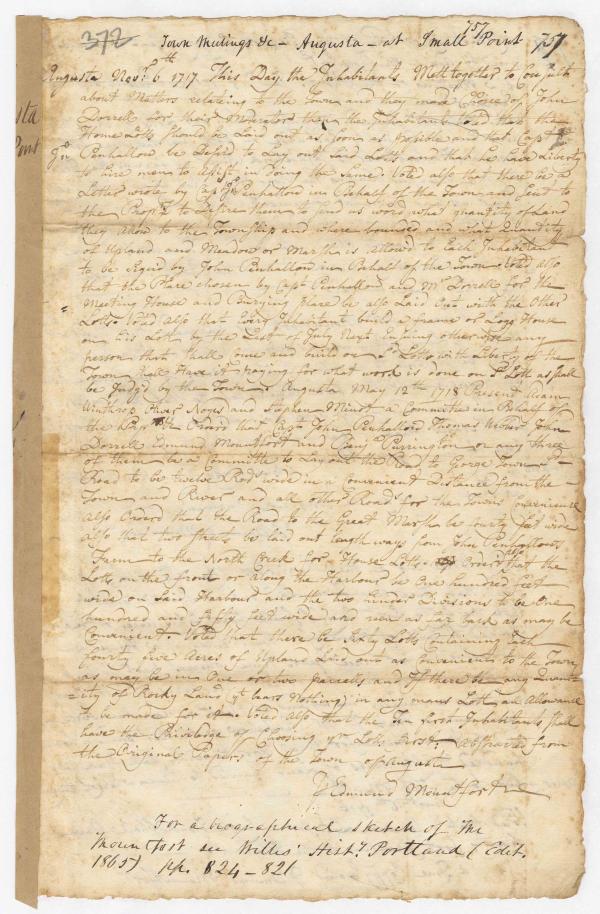 372 Town Meetings &c - Augusta - at Small Point 757
757
Augusta Novr. 6th 1717 This Day the Inhabitants Mett together to Consult
about Matters relating to the Town and they made Choice of John
Dorrell for their Moderator then the Inhabitants Voted that the
Home Lotts should be Laid out as soon as possible and that Capt.
Jn Penhallow be Desired to Lay out Said Lotts and that he have Liberty
to hire men to Assist in Doing the Same. Voted also that there be a
Letter wrote by Capt Jn Penhallow in Behalf of the Town and Sent to
the Proprs to desire them to send us word what quantity of Land
they allow to the Township and where bounded and what Quantity
of Upland and Meadow or Marsh is allowed to Each Inhabitant
to be Signd by John Penhallow in Behalf of the Town. Voted also
that the Place chosen by Capt Penhallow and Mr Dorrell for the
Meeting House and Burying place be also Laid Out with the Other
Lotts. Voted also that Every Inhabitant build a frame or Logg House
on his Lott by the Last of July Next Ending otherwise any
person that shall come and build on sd Lotts with Liberty of the
Town shall Have it paying for what work is done on sd Lott as shall
be Judg'd by the Town. Augusta May 12th 1718 Present Adam
Winthrop Oliver Noyes and Stephen Minot a Committee in Behalf of
the Proprs Orderd that Capt John Penhallow Thomas John
Dorrell Edmund Mountfort and Benja Purrington or any three
of them be a Committee to Lay out the Road to George Town sd
Road to be twelve Rods wide in a Convenient Distance from the
Town and River and all other Roads for the Towns Convenience
Also Orderd that the Road to the Great Marsh be fourty feet wide
also that two streets be laid out length ways from John Penhallows
Farm to the North Creek for House Lotts. Orderd also that the
Lotts on the front or along the Harbour be One hundred feet
wide on Said Harbour and the two hinder Divisions to be One
hundred and fifty feet wide and run as far back as may be
Convenient. Voted that there be Sixty Lotts Containing Each
fourty five Acres of Upland Laid out as Convenient to the Town
as may be in a One or two parcells and If there be any Quant
=ity of Rocky Land yt bears Nothing in any mans Lott an Allowance
to be made for it. Voted Also that the ten first Inhabitants shall
have the Priviledge of Choosing yr Lotts First. Abstracted from
the Original Papers of the Town of Augusta
Edmund Mountfort
For a biographical sketch of Mr
Mountfort see Willis' Histy. Portland (Edit.
1865) pp. 824-821